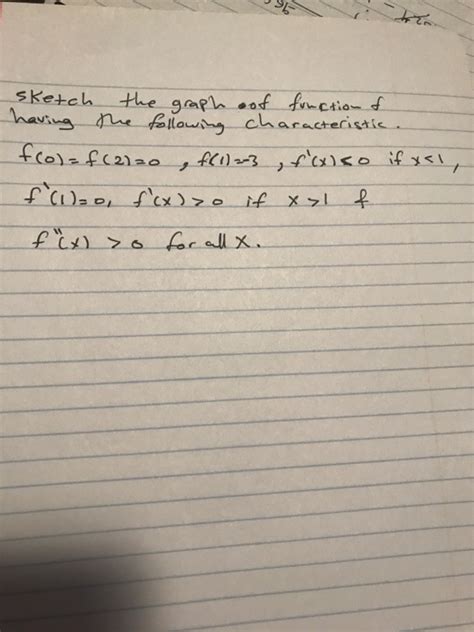 sketch the graph oof function f
having the following characteristic.
f(0)=f(2)=0 , f(1)=-3 , f'(x)<0 if x<1,
f'(1)=0, f'(x)>0 if x>1 &
f"(x) >0 for all x.